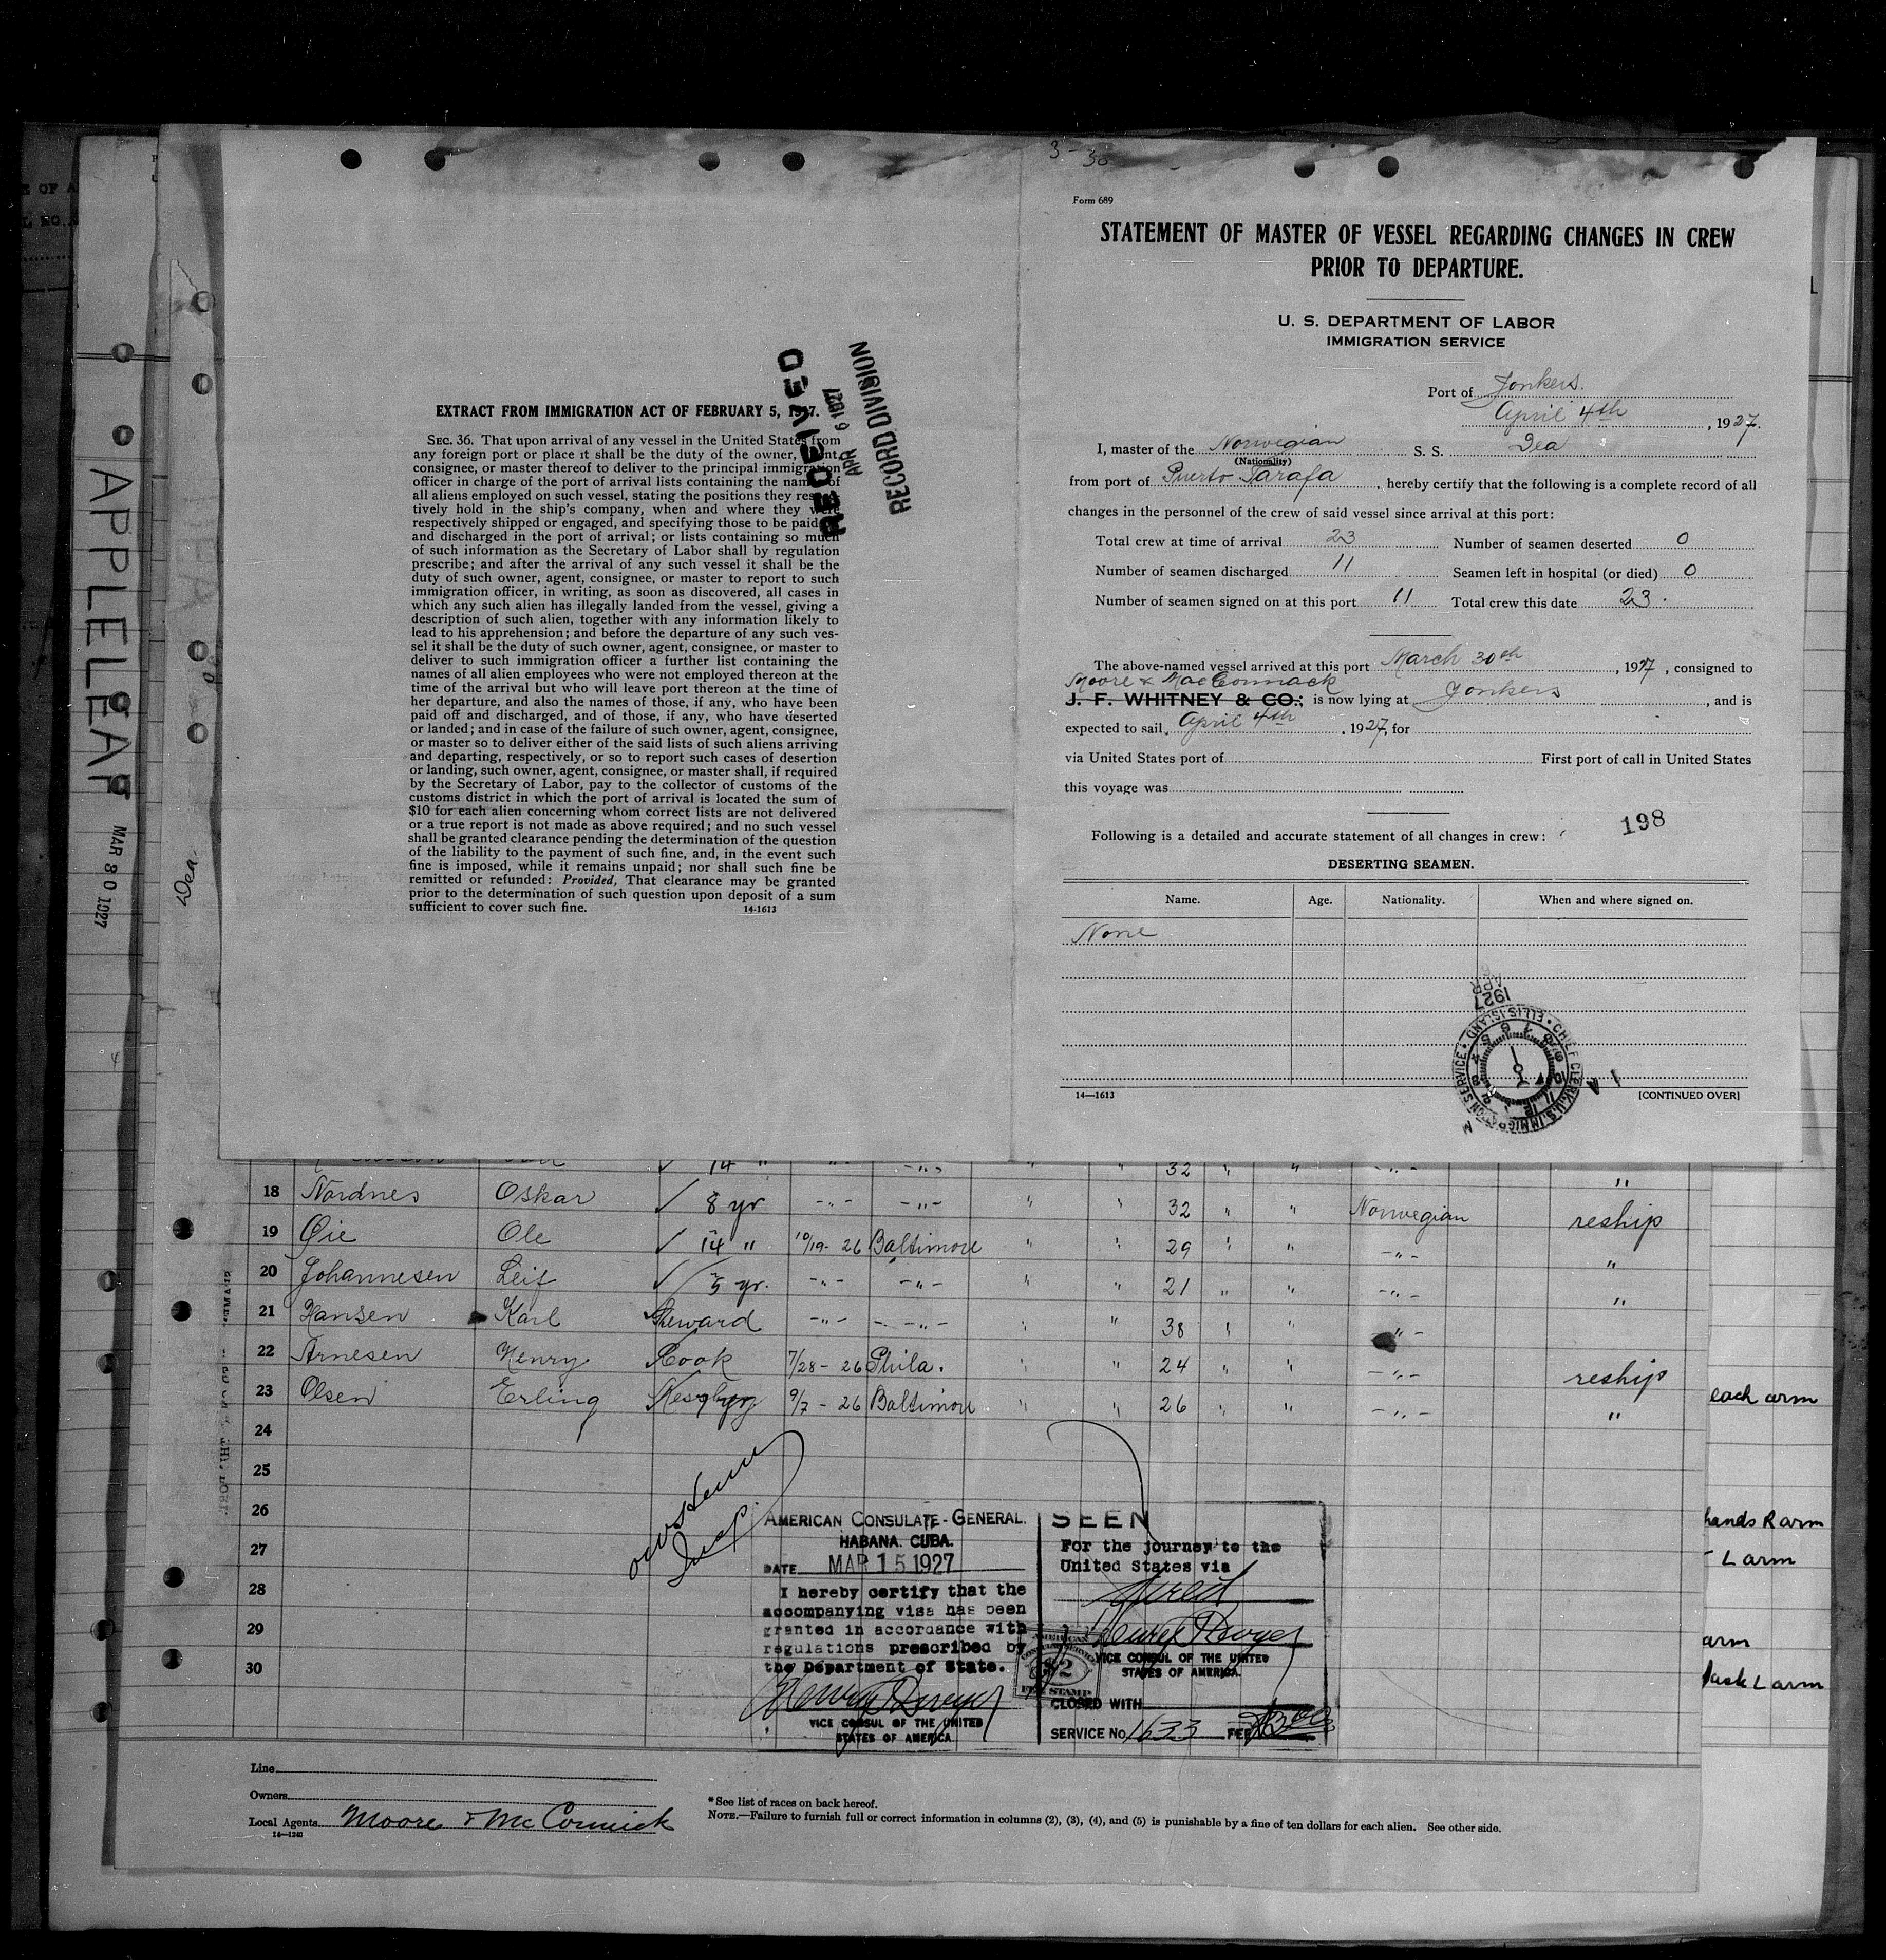 3-30
Form 689
STATEMENT OF MASTER OF VESSEL REGARDING CHANGES IN CREW
PRIOR TO DEPARTURE.
U. S. DEPARTMENT OF LABOR
IMMIGRATION SERVICE
Port of Yonkers.
April 4th, 1927.
I, master of the Norwegian S. S. Dea
(Nationality)
from port of Puerto Tarafa, hereby certify that the following is a complete record of all
changes in the personnel of the crew of said vessel since arrival at this port:
Total crew at time of arrival 23 Number of seamen deserted 0
Number of seamen discharged 11 Seamen left in hospital (or died) 0
Number of seamen signed on at this port 11 Total crew this date 23.
The above-named vessel arrived at this port March 30th, 1927, consigned to
Moore & MacCormack
J. F. WHITNEY & CO.; is now lying at Yonkers, and is
expected to sail April 4th, 1927, for
via United States port of First port of call in United States
this voyage was
Following is a detailed and accurate statement of all changes in crew:
198
DESERTING SEAMEN.
Name. Age. Nationality. When and where signed on.
None
14—1613 [CONTINUED OVER]
APR 1927
CHIEF CLERK, U.S. IMMIGRATION SERVICE • ELLIS ISLAND •
RECEIVED
APR 6 1927
RECORD DIVISION
EXTRACT FROM IMMIGRATION ACT OF FEBRUARY 5, 1917.
SEC. 36. That upon arrival of any vessel in the United States from
any foreign port or place it shall be the duty of the owner, agent,
consignee, or master thereof to deliver to the principal immigration
officer in charge of the port of arrival lists containing the names of
all aliens employed on such vessel, stating the positions they respec-
tively hold in the ship's company, when and where they were
respectively shipped or engaged, and specifying those to be paid off
and discharged in the port of arrival; or lists containing so much
of such information as the Secretary of Labor shall by regulation
prescribe; and after the arrival of any such vessel it shall be the
duty of such owner, agent, consignee, or master to report to such
immigration officer, in writing, as soon as discovered, all cases in
which any such alien has illegally landed from the vessel, giving a
description of such alien, together with any information likely to
lead to his apprehension; and before the departure of any such ves-
sel it shall be the duty of such owner, agent, consignee, or master to
deliver to such immigration officer a further list containing the
names of all alien employees who were not employed thereon at the
time of the arrival but who will leave port thereon at the time of
her departure, and also the names of those, if any, who have been
paid off and discharged, and of those, if any, who have deserted
or landed; and in case of the failure of such owner, agent, consignee,
or master so to deliver either of the said lists of such aliens arriving
and departing, respectively, or so to report such cases of desertion
or landing, such owner, agent, consignee, or master shall, if required
by the Secretary of Labor, pay to the collector of customs of the
customs district in which the port of arrival is located the sum of
$10 for each alien concerning whom correct lists are not delivered
or a true report is not made as above required; and no such vessel
shall be granted clearance pending the determination of the question
of the liability to the payment of such fine, and, in the event such
fine is imposed, while it remains unpaid; nor shall such fine be
remitted or refunded: Provided, That clearance may be granted
prior to the determination of such question upon deposit of a sum
sufficient to cover such fine. 14-1613
APPLELEAF
MAR 30 1927
DEA
Dea.
14 " -"- -"- " " 32 " " -"- "
18 Nordnes Oskar 8 yr -"- -"- " " 32 " " Norwegian reship
19 Øie Ole 14 " 10/19-26 Baltimore " " 29 " " -"- "
20 Johannesen Leif 5 yr. -"- -"- " " 21 " " -"- "
21 Hansen Karl Steward -"- -"- " " 38 " " -"-
22 Arnesen Henry Cook 7/28-26 Phila. " " 24 " " -"- reship
23 Olsen Erling Messboy 9/7-26 Baltimore " " 26 " " -"- "
24
25
26
27
28
29
30
each arm
hands R arm
L arm
arm
L arm
AMERICAN CONSULATE-GENERAL.
HABANA. CUBA.
DATE MAR 15 1927
I hereby certify that the
accompanying visa has been
granted in accordance with
regulations prescribed by
the Department of State.
VICE CONSUL OF THE UNITED
STATES OF AMERICA
SEEN
For the journey to the
United States via
direct
VICE CONSUL OF THE UNITED
STATES OF AMERICA.
AMERICAN
CONSULAR SERVICE
$2
FEE STAMP
CLOSED WITH
SERVICE No 1633 FEE
Line
Owners
Local Agents Moore & McCormick
14—1240
*See list of races on back hereof.
NOTE.—Failure to furnish full or correct information in columns (2), (3), (4), and (5) is punishable by a fine of ten dollars for each alien. See other side.